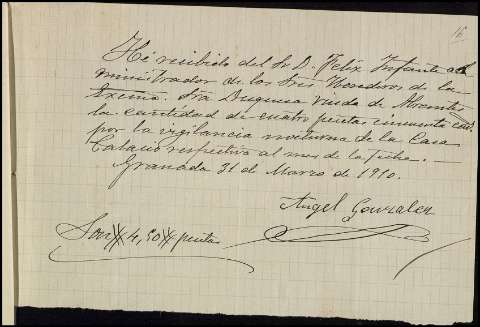 16
He recibido del Sr. D. Felix Infante ad
ministrador de los Srs Herederos de la
Exema. Sra Duquesa viuda de Abrantes
la cantidad de cuatro pesetas cincuenta cent.
por la vigilancia nocturna de la Casa
Palacio respectiva al mes de la fecha. —
Granada 31 de Marzo de 1910.
Angel Gonzalez
Son # 4,50 # pesetas